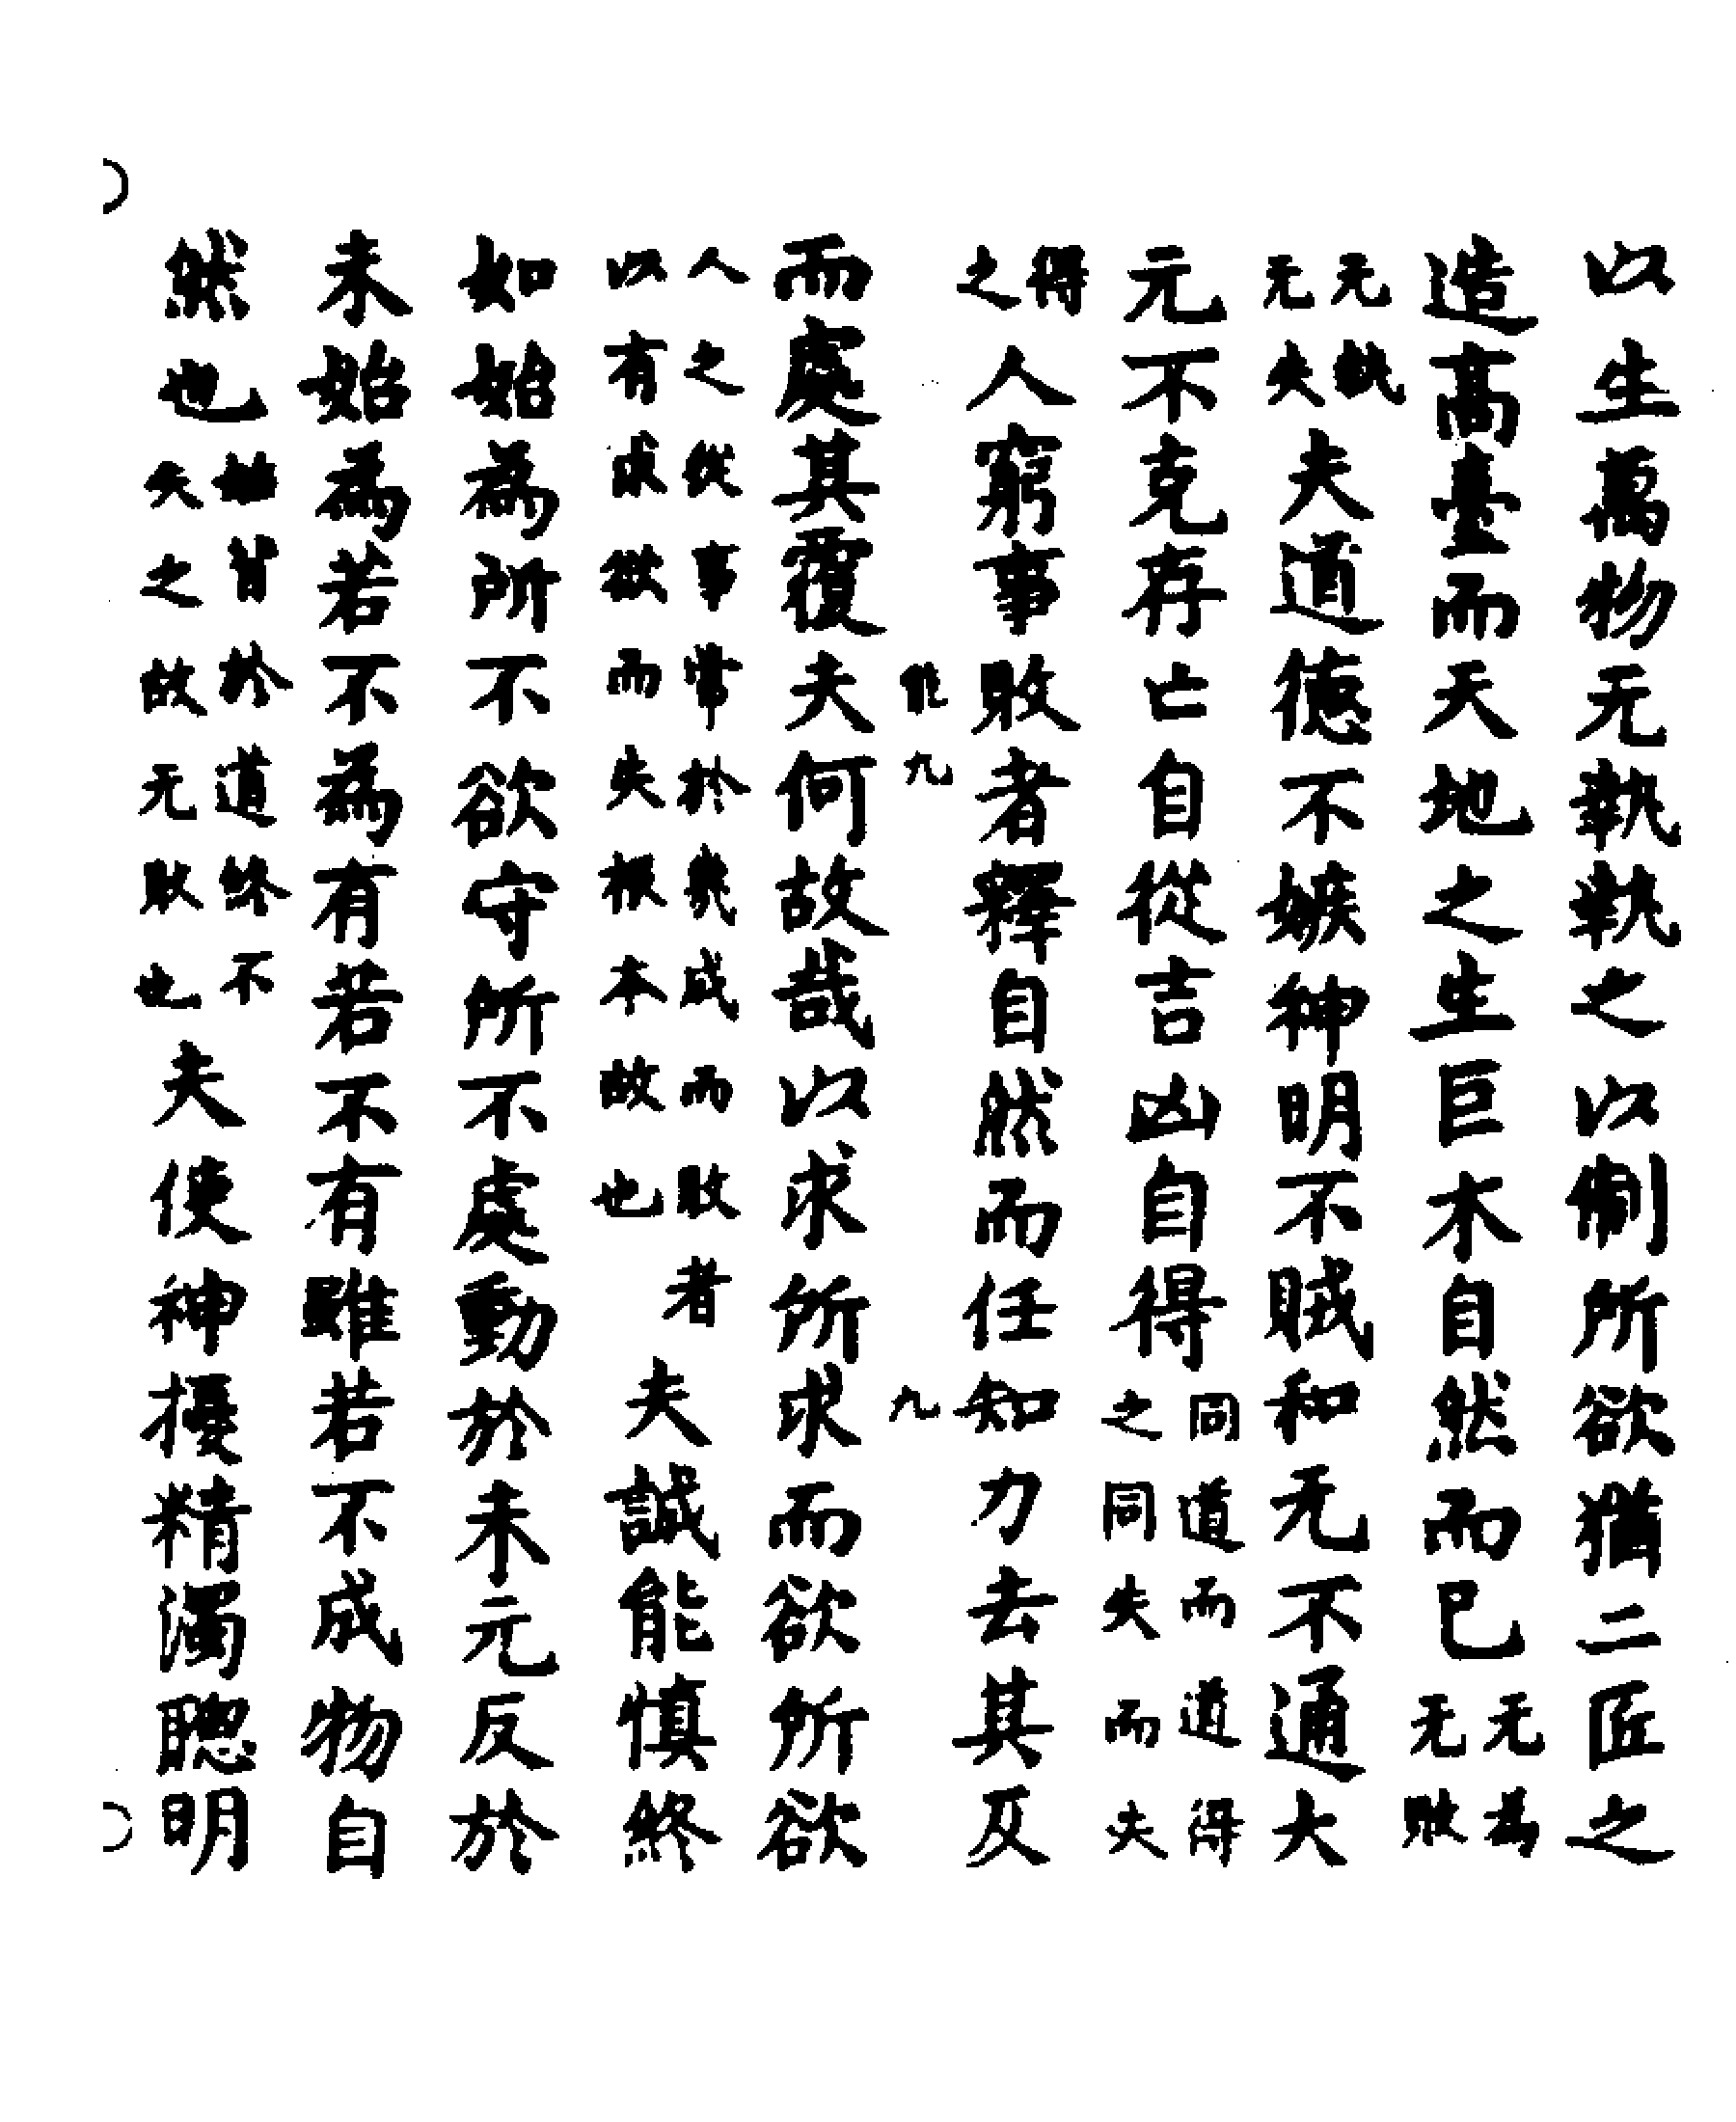 以生萬物无執執之以制所欲猶二匠之
造髙臺而天地之生巨木自然而已无為无敗
无執无失夫道德不嫉神明不賊和无不通大
元不克存亡自從吉凶自得同道而道得之同失而失
得之人窮事敗者釋自然而任知力去其反
而處其覆夫何故哉以求所求而欲所欲
人之從事常於幾成而敗者以有求欲而失根本故也夫誠能慎終
如始為所不欲守所不處動於未元反於
未始為若不為有若不有雖若不成物自
然也始皆於道終不失之故无敗也夫使神擾精濁聰明